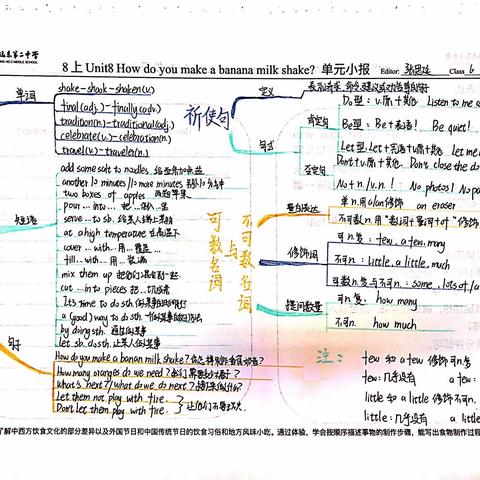 第二中学
8上Unit8 How do you make a banana milk shake? 单元小报 Editor: Class 6
单词
shake-shook-shaken(v.)
final(adj.)-finally(adv.)
tradition(n.)-traditional(adj.)
celebrate(v.)-celebration(n.)
travel(v.)-traveler(n.)
短语
add some salt to noodles 给面条加点盐
another 10 minutes/10 more minutes 另外10分钟
two boxes of apples 两箱苹果
pour...into... 把...倒入...里
serve...to sb. 给某人端上某物
at a high temperature 在高温下
cover...with... 用...覆盖...
fill...with... 用...装满
mix them up 把它们混合到一起
cut...into pieces 把...切成片
It's time to do sth.
a (good) way to do sth.
by doing sth. 通过做某事
let sb. do sth. 让某人做某事
句子
How do you make a banan milk shake?
How many oranges do we need?
What's next?/What do we do next?
Let them not play with fire.
Don't let them play with fire.
让他们不要玩火
祈使句
定义
句式
肯定句
Do型: v.原+其他. Listen to me
Be型: Be+表语! Be quiet!
Let型: Let+宾语+v.原+其他. Let me
否定句
Don't+v.原+其他. Don't close the do
No+n./v.n.! No photos! No
可数名词与不可数名词
单n.用a/an修饰 an eraser
不可数n.用"数词+量词+of"修饰
修饰词
可n.复: few, a few, many
不可n.: little, a little, much
可数n.复与不可n.: some, lots of/a
提问数量
可n.复: how many
不可n. how much
注:
few 和 a few 修饰可n.复
few: 几乎没有 a few
little 和 a little 修饰不可n.
little: 几乎没有 a little
了解中西方饮食文化的部分差异以及外国节日和中国传统节日的饮食习俗和地方风味小吃。通过体验、学会按顺序描述事物的制作步骤，能写出食物制作过程